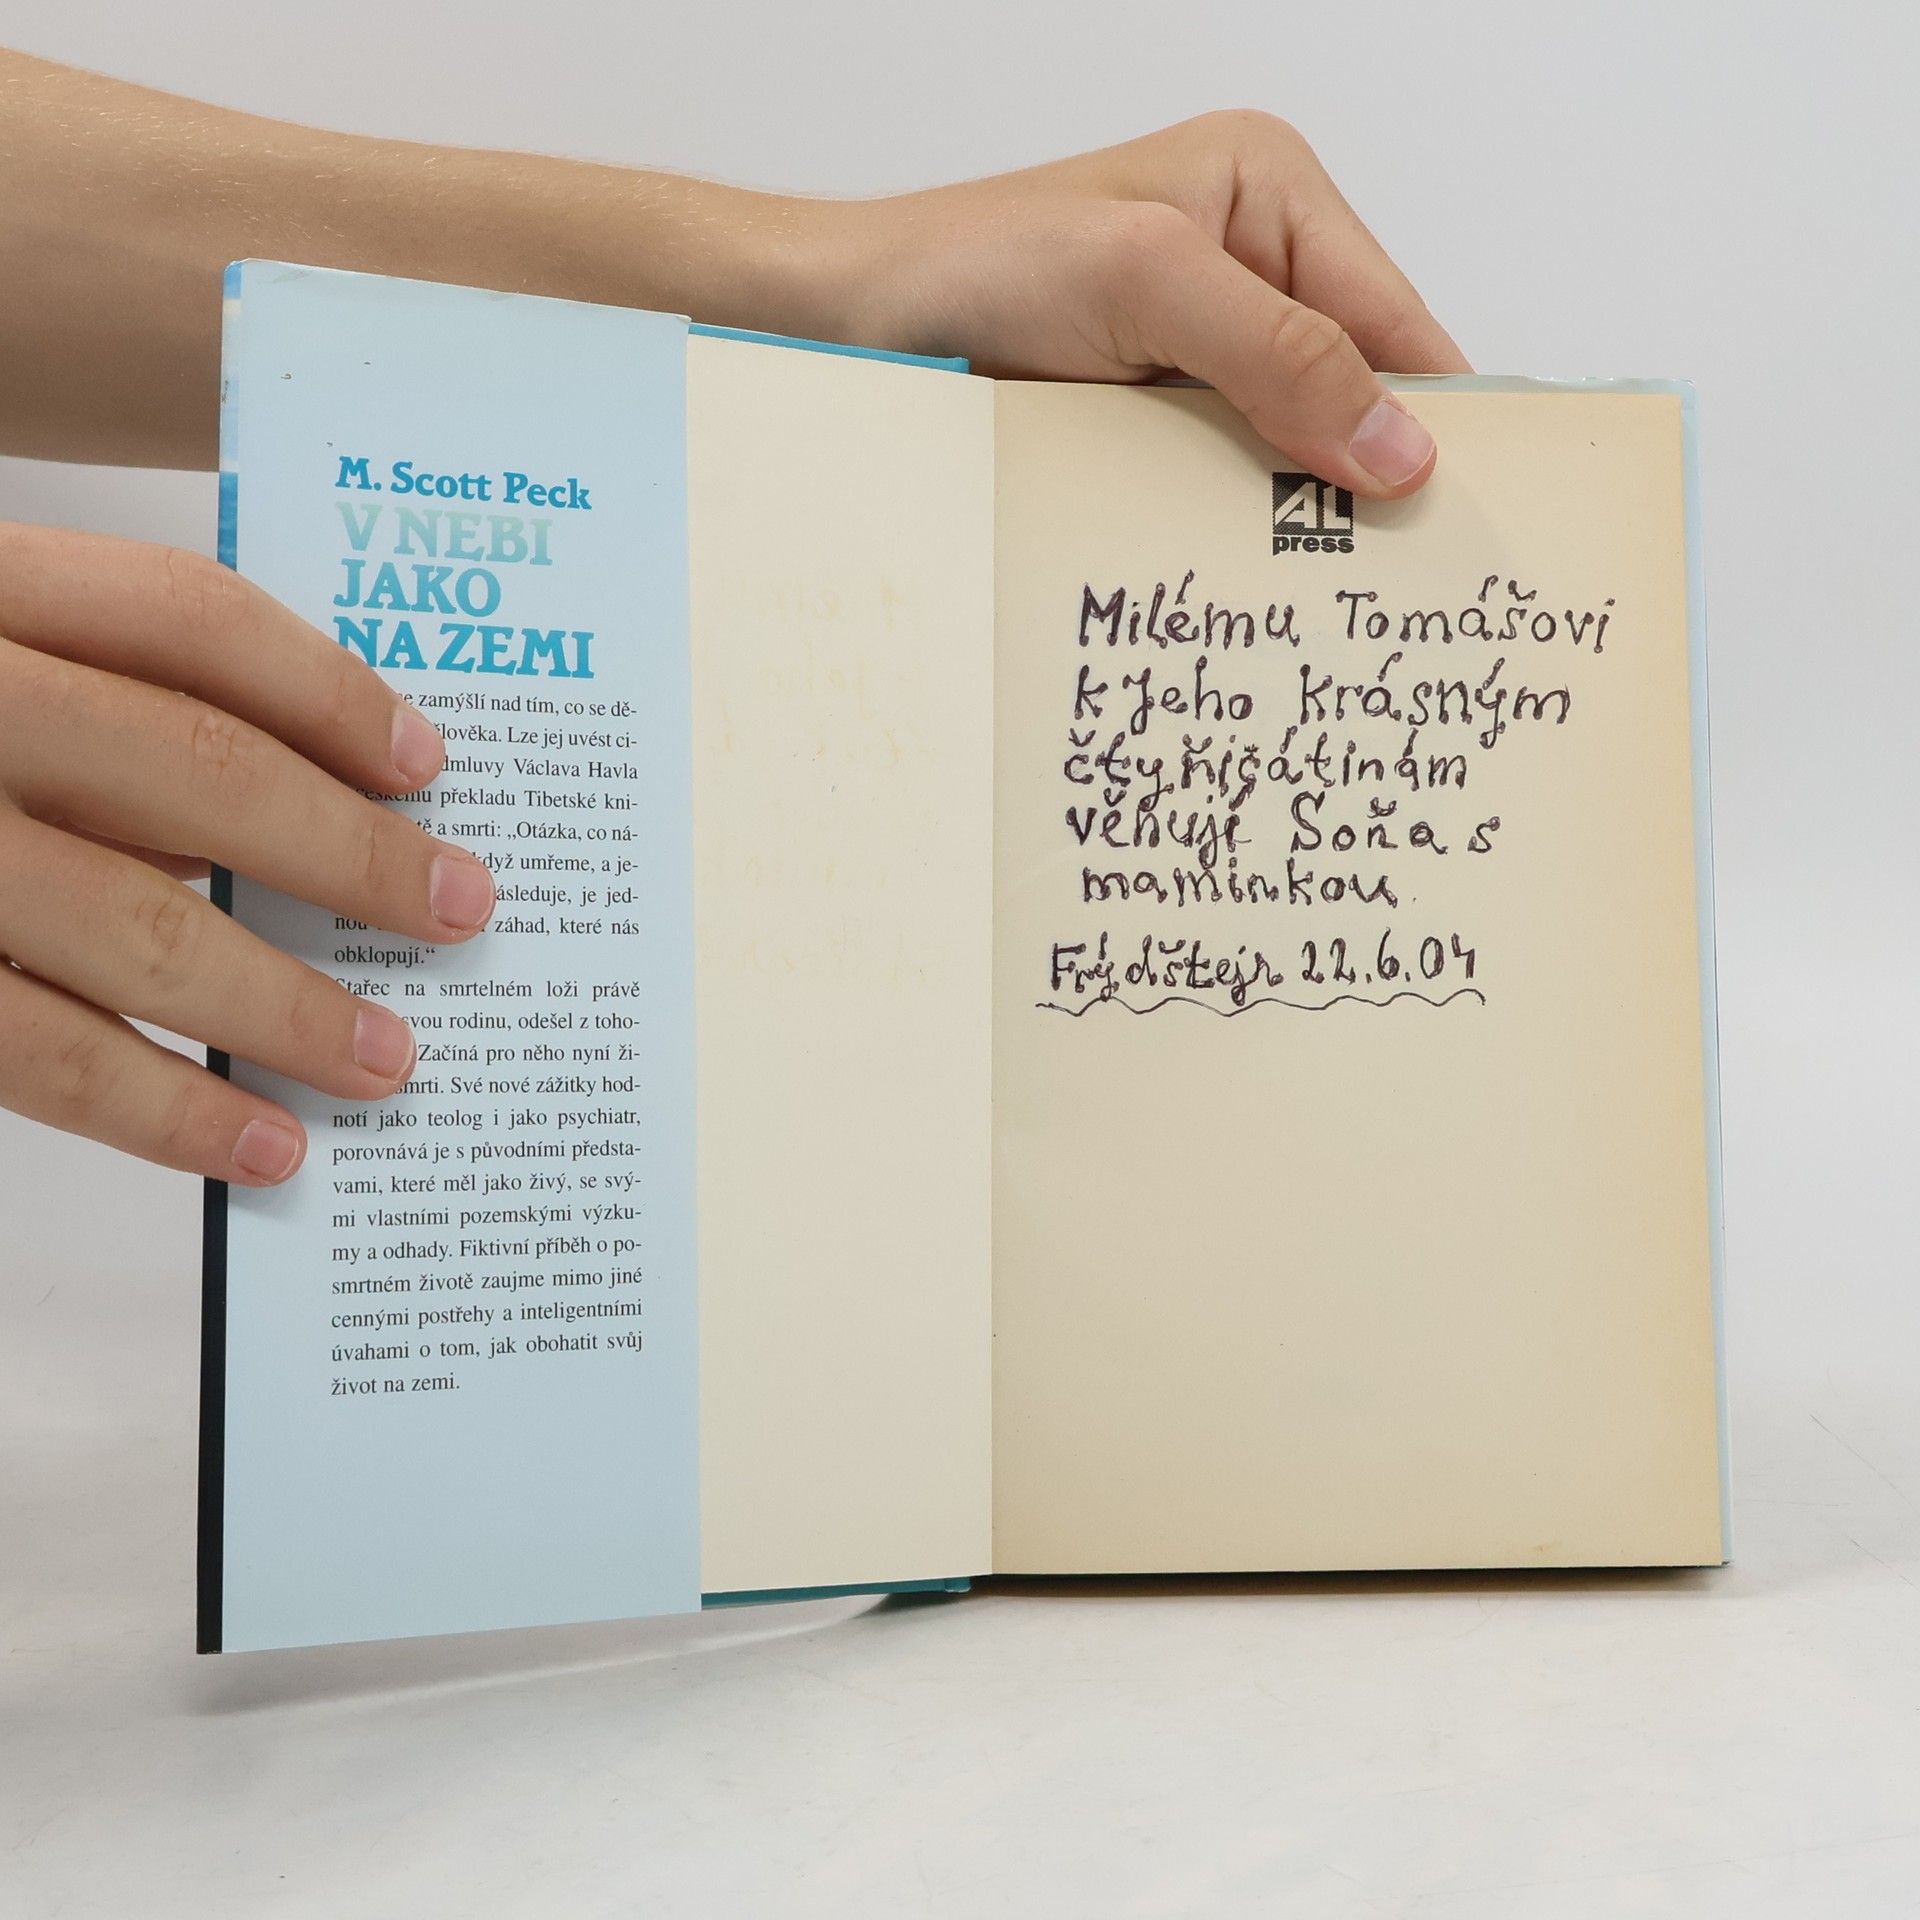 M. Scott Peck
V NEBI
JAKO
NA ZEMI
zamýšlí nad tím, co se dě-
Lze jej uvést ci-
Václava Havla
překladu Tibetské kni-
a smrti: „Otázka, co ná-
umřeme, a je-
je jed-
záhad, které nás
obklopují.“
Stařec na smrtelném loži právě
svou rodinu, odešel z toho-
Začíná pro něho nyní ži-
Své nové zážitky hod-
notí jako teolog i jako psychiatr,
porovnává je s původními předsta-
vami, které měl jako živý, se svý-
mi vlastními pozemskými výzku-
my a odhady. Fiktivní příběh o po-
smrtném životě zaujme mimo jiné
cennými postřehy a inteligentními
úvahami o tom, jak obohatit svůj
život na zemi.
AL
press
Milému Tomášovi
k Jeho krásným
čtyřičátinám
věnují Soňa s
maminkou.
Frýdštejn 22.6.04